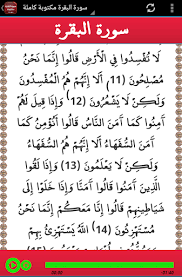 سورة البقرة مكتوبة كاملة
سورة البقرة
لَا تُفْسِدُوا فِي الْأَرْضِ قَالُوا إِنَّمَا نَحْنُ
مُصْلِحُونَ (11) أَلَا إِنَّهُمْ هُمُ الْمُفْسِدُونَ
وَلَكِنْ لَا يَشْعُرُونَ (12) وَإِذَا قِيلَ لَهُمْ
آمِنُوا كَمَا آمَنَ النَّاسُ قَالُوا أَنُؤْمِنُ كَمَا
آمَنَ السُّفَهَاءُ أَلَا إِنَّهُمْ هُمُ السُّفَهَاءُ
وَلَكِنْ لَا يَعْلَمُونَ (13) وَإِذَا لَقُوا
الَّذِينَ آمَنُوا قَالُوا آمَنَّا وَإِذَا خَلَوْا إِلَى
شَيَاطِينِهِمْ قَالُوا إِنَّا مَعَكُمْ إِنَّمَا نَحْنُ
مُسْتَهْزِئُونَ (14) اللَّهُ يَسْتَهْزِئُ بِهِمْ